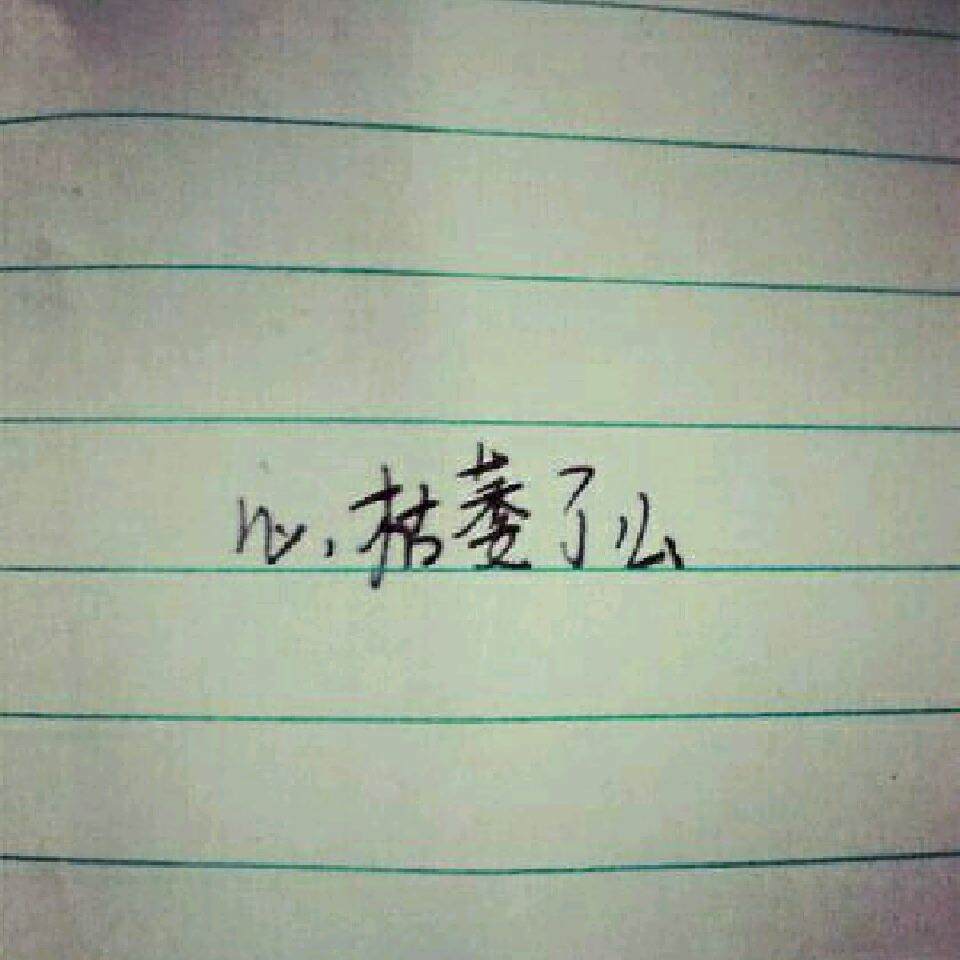 心,枯萎了么